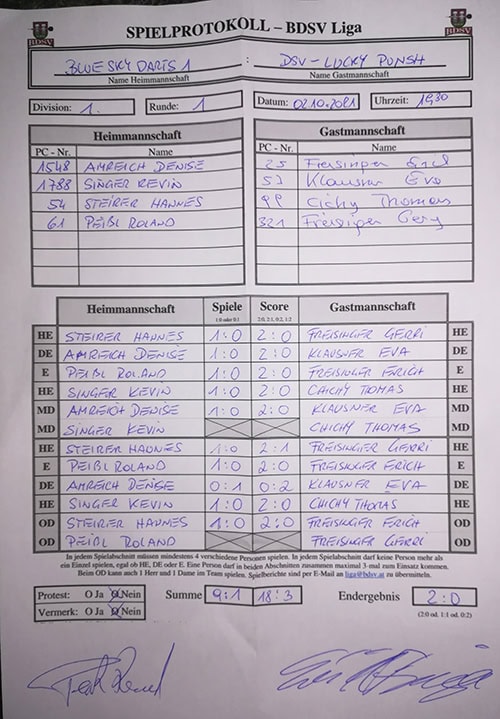 SPIELPROTOKOLL – BDSV Liga
BDSV BDSV
BLUE SKY DARTS 1 : DSV - LUCKY PUNSH
Name Heimmannschaft Name Gastmannschaft
Division: 1. Runde: 1 Datum: 02.10.2021 Uhrzeit: 1930
Heimmannschaft Gastmannschaft
PC - Nr. Name PC - Nr. Name
1548 AMREICH DENISE 25 Freisinger
1788 SINGER KEVIN 53 Klausner Eva
54 STEIRER HANNES 99 Cichy Thomas
61 PEIBL ROLAND 321 Freisinger Gery
Heimmannschaft Spiele Score Gastmannschaft
1:0 oder 0:1 2:0, 2:1, 0:2, 1:2
HE STEIRER HANNES 1:0 2:0 FREISINGER GERRI HE
DE AMREICH DENISE 1:0 2:0 KLAUSNER EVA DE
E PEIBL ROLAND 1:0 2:0 FREISINGER ERICH E
HE SINGER KEVIN 1:0 2:0 CHICHY THOMAS HE
MD AMREICH DENISE 1:0 2:0 KLAUSNER EVA MD
MD SINGER KEVIN CHICHY THOMAS MD
HE STEIRER HANNES 1:0 2:1 FREISINGER GERRI HE
E PEIBL ROLAND 1:0 2:0 FREISINGER ERICH E
DE AMREICH DENISE 0:1 0:2 KLAUSNER EVA DE
HE SINGER KEVIN 1:0 2:0 CHICHY THOMAS HE
OD STEIRER HANNES 1:0 2:0 FREISINGER ERICH OD
OD PEIBL ROLAND FREISINGER GERRI OD
In jedem Spielabschnitt müssen mindestens 4 verschiedene Personen spielen. In jedem Spielabschnitt darf keine Person mehr als
ein Einzel spielen, egal ob HE, DE oder E. Eine Person darf in beiden Abschnitten zusammen maximal 3-mal zum Einsatz kommen.
Beim OD kann auch 1 Herr und 1 Dame im Team spielen. Spielberichte sind per E-Mail an liga@bdsv.at zu übermitteln.
Protest: O Ja O Nein Summe 9:1 18:3 Endergebnis 2:0
Vermerk: O Ja O Nein (2:0 od. 1:1 od. 0:2)